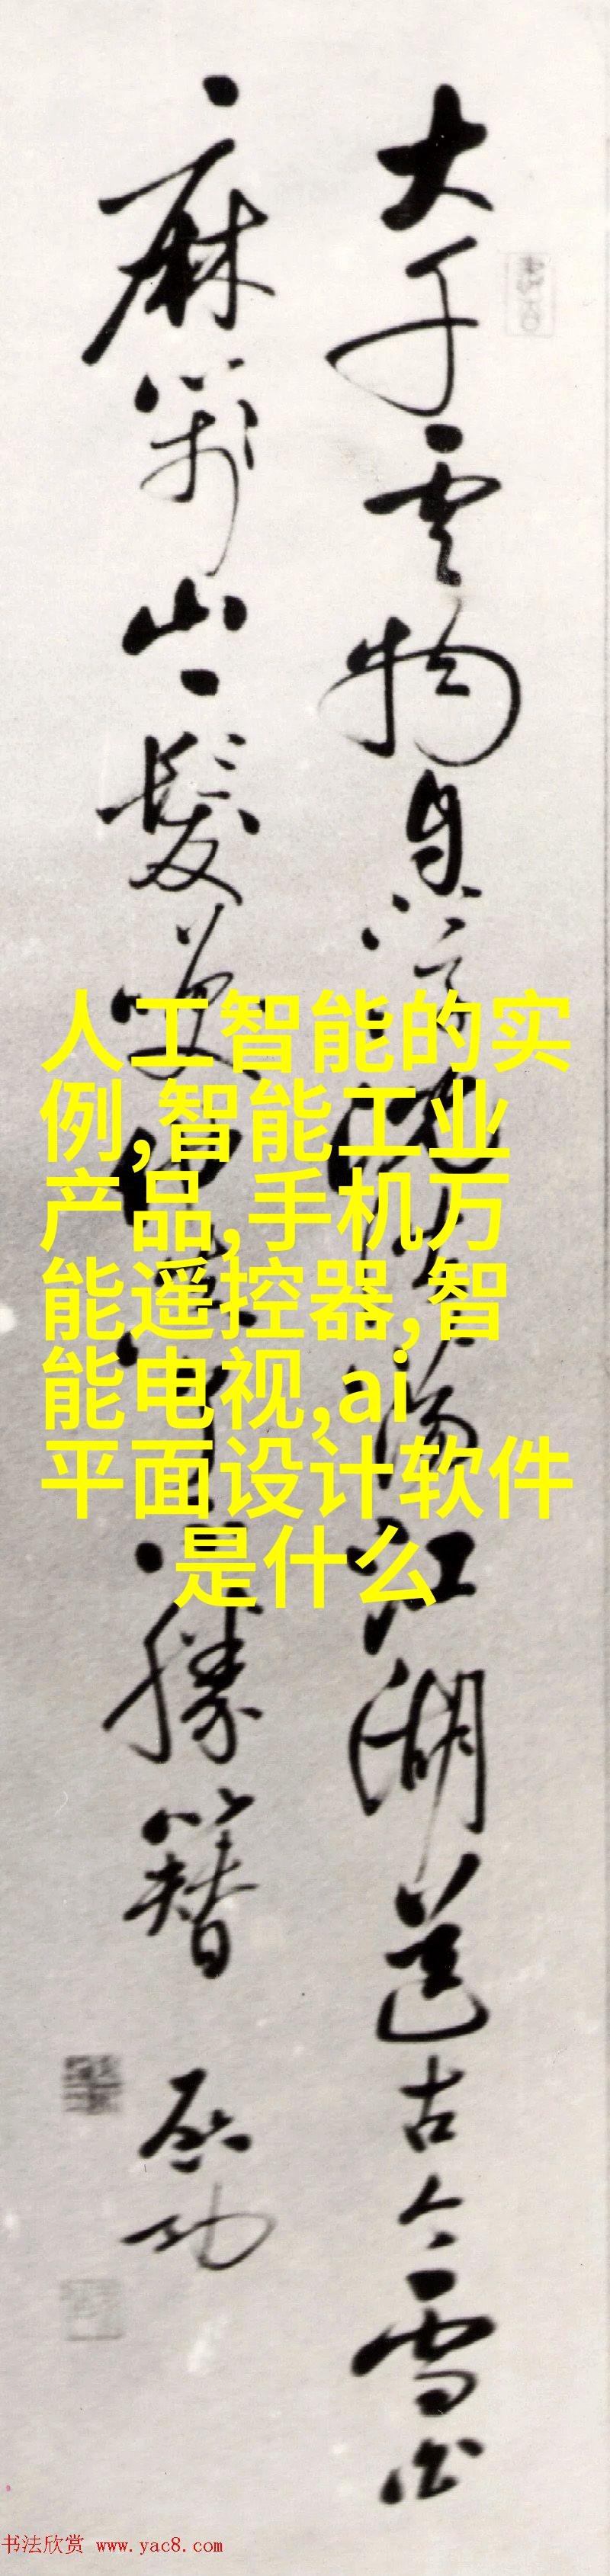 大千雲物自浮沈 蕩江湖送古今雪
山一髮笑 勝簪
啟功
人工智能的实
例,智能工业
产品,手机万
能遥控器,智
能电视,ai
平面设计软件
是什么
书法欣赏 www.yac8.com